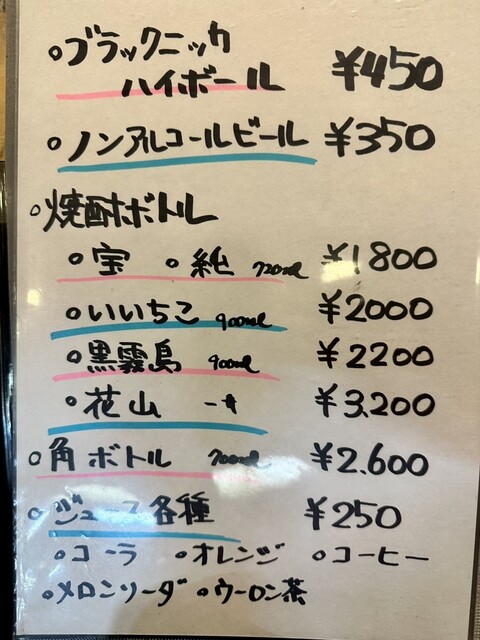 ○ブラックニッカ
ハイボール ¥450
○ノンアルコールビール ¥350
○焼酎ボトル
○宝 ○純 720ml ¥1800
○いいちこ 900ml ¥2000
○黒霧島 900ml ¥2200
○花山 一升 ¥3,200
○角ボトル 700ml ¥2.600
○ジュース各種 ¥250
○コーラ ○オレンジ ○コーヒー
○メロンソーダ ○ウーロン茶